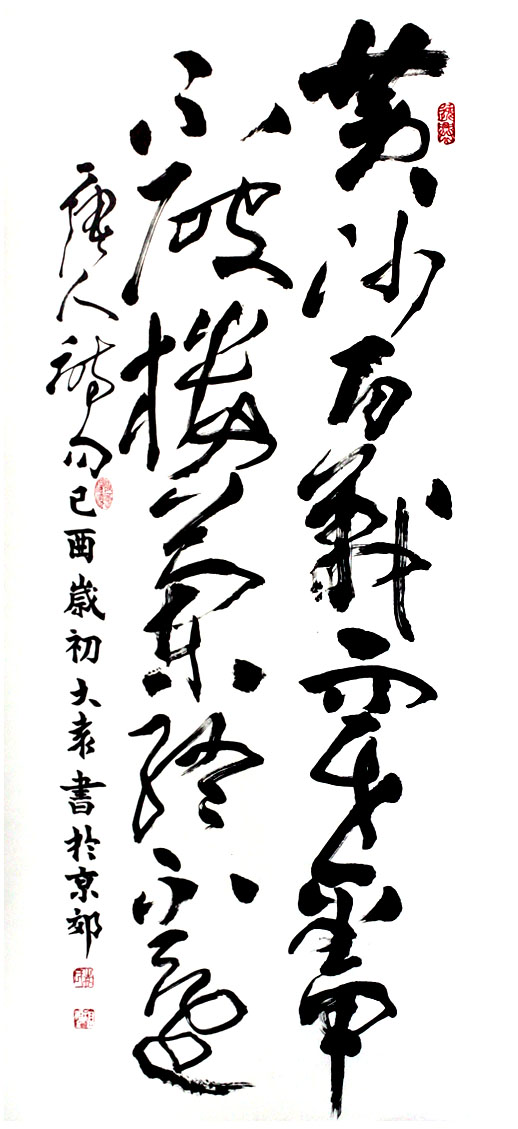 黄沙百戰穿金甲
不破樓蘭終不還
唐人詩句己酉歲初大袁書於京郊